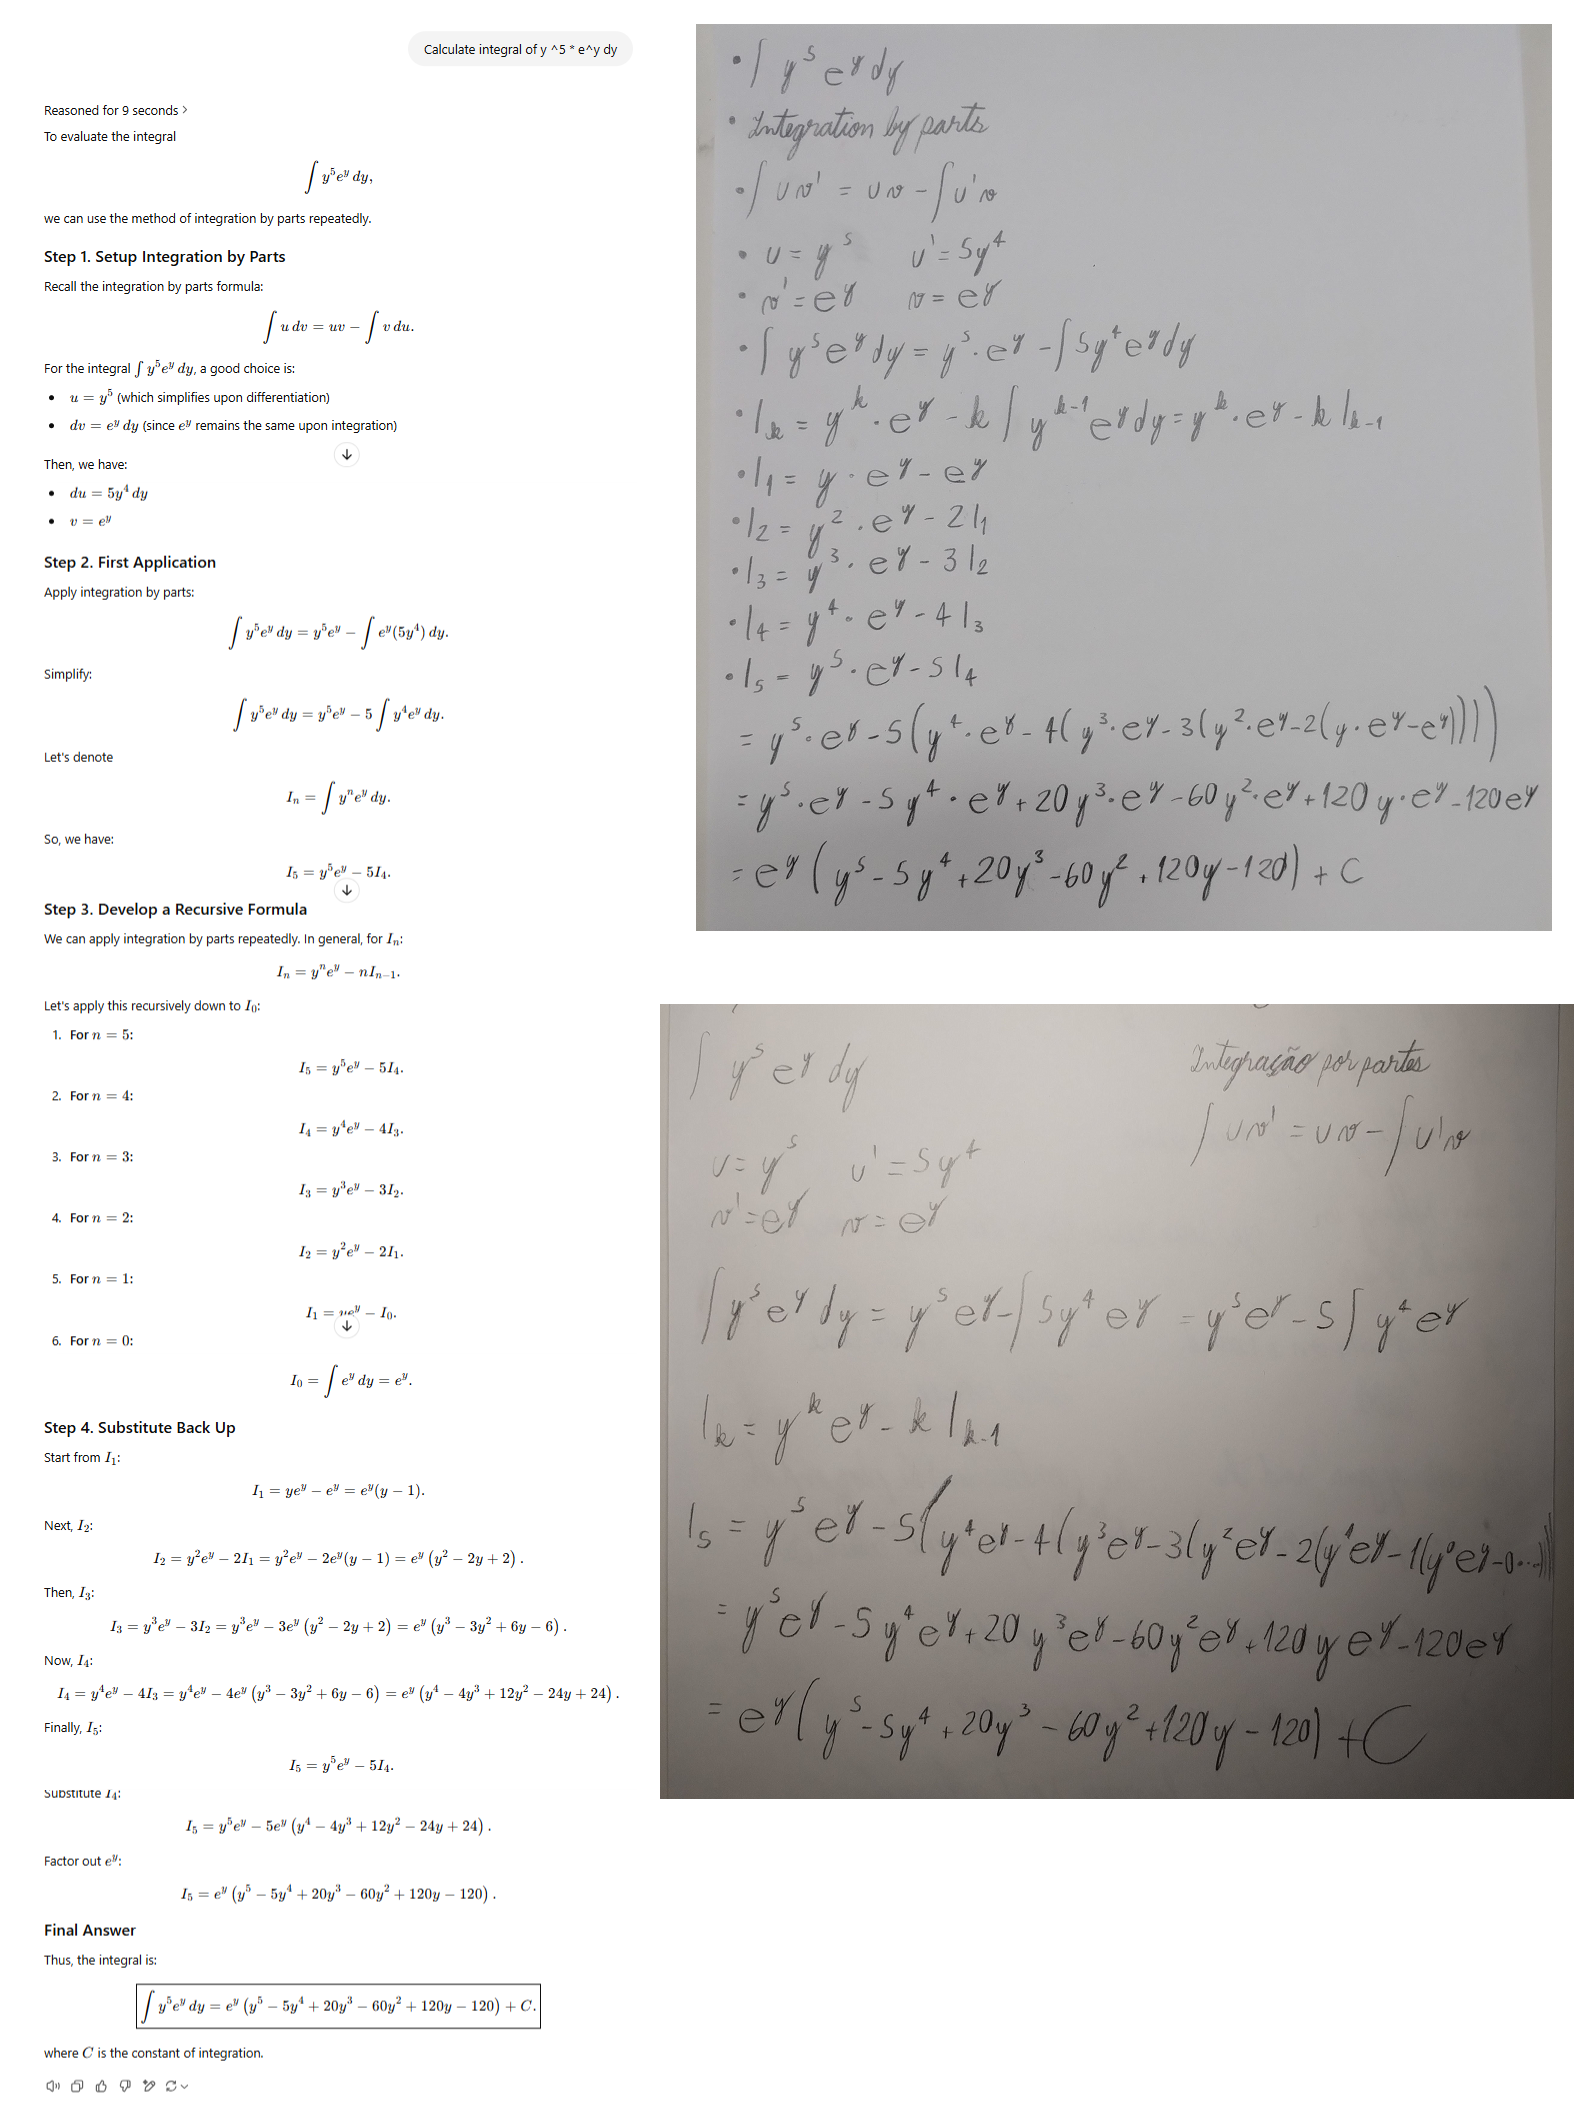 Calculate integral of y ^5 * e^y dy
Reasoned for 9 seconds >
To evaluate the integral
∫ y⁵eʸ dy,
we can use the method of integration by parts repeatedly.
Step 1. Setup Integration by Parts
Recall the integration by parts formula:
∫ u dv = uv − ∫ v du.
For the integral ∫ y⁵eʸ dy, a good choice is:
• u = y⁵ (which simplifies upon differentiation)
• dv = eʸ dy (since eʸ remains the same upon integration)
Then, we have:
• du = 5y⁴ dy
• v = eʸ
Step 2. First Application
Apply integration by parts:
∫ y⁵eʸ dy = y⁵eʸ − ∫ eʸ(5y⁴) dy.
Simplify:
∫ y⁵eʸ dy = y⁵eʸ − 5 ∫ y⁴eʸ dy.
Let's denote
Iₙ = ∫ yⁿeʸ dy.
So, we have:
I₅ = y⁵eʸ − 5I₄.
Step 3. Develop a Recursive Formula
We can apply integration by parts repeatedly. In general, for Iₙ:
Iₙ = yⁿeʸ − nIₙ₋₁.
Let's apply this recursively down to I₀:
1. For n = 5:
I₅ = y⁵eʸ − 5I₄.
2. For n = 4:
I₄ = y⁴eʸ − 4I₃.
3. For n = 3:
I₃ = y³eʸ − 3I₂.
4. For n = 2:
I₂ = y²eʸ − 2I₁.
5. For n = 1:
I₁ = yeʸ − I₀.
6. For n = 0:
I₀ = ∫ eʸ dy = eʸ.
Step 4. Substitute Back Up
Start from I₁:
I₁ = yeʸ − eʸ = eʸ(y − 1).
Next, I₂:
I₂ = y²eʸ − 2I₁ = y²eʸ − 2eʸ(y − 1) = eʸ (y² − 2y + 2) .
Then, I₃:
I₃ = y³eʸ − 3I₂ = y³eʸ − 3eʸ (y² − 2y + 2) = eʸ (y³ − 3y² + 6y − 6) .
Now, I₄:
I₄ = y⁴eʸ − 4I₃ = y⁴eʸ − 4eʸ (y³ − 3y² + 6y − 6) = eʸ (y⁴ − 4y³ + 12y² − 24y + 24) .
Finally, I₅:
I₅ = y⁵eʸ − 5I₄.
Substitute I₄:
I₅ = y⁵eʸ − 5eʸ (y⁴ − 4y³ + 12y² − 24y + 24) .
Factor out eʸ:
I₅ = eʸ (y⁵ − 5y⁴ + 20y³ − 60y² + 120y − 120) .
Final Answer
Thus, the integral is:
∫ y⁵eʸ dy = eʸ (y⁵ − 5y⁴ + 20y³ − 60y² + 120y − 120) + C.
where C is the constant of integration.
• ∫ y⁵ eʸ dy
• Integration by parts
• ∫ u v' = u v − ∫ u' v
• u = y⁵ u' = 5y⁴
• v' = eʸ v = eʸ
• ∫ y⁵ eʸ dy = y⁵ · eʸ − ∫ 5y⁴ eʸ dy
• Iₖ = yᵏ · eʸ − k ∫ yᵏ⁻¹ eʸ dy = yᵏ · eʸ − k Iₖ₋₁
• I₁ = y · eʸ − eʸ
• I₂ = y² · eʸ − 2 I₁
• I₃ = y³ · eʸ − 3 I₂
• I₄ = y⁴ · eʸ − 4 I₃
• I₅ = y⁵ · eʸ − 5 I₄
= y⁵ · eʸ − 5(y⁴ · eʸ − 4(y³ · eʸ − 3(y² · eʸ − 2(y · eʸ − eʸ))))
= y⁵ · eʸ − 5 y⁴ · eʸ + 20 y³ · eʸ − 60 y² · eʸ + 120 y · eʸ − 120 eʸ
= eʸ (y⁵ − 5 y⁴ + 20y³ − 60 y² + 120y − 120) + C
∫ y⁵ eʸ dy Integração por partes
∫ u v' = u v − ∫ u' v
u = y⁵ u' = 5 y⁴
v' = eʸ v = eʸ
∫ y⁵ eʸ dy = y⁵ eʸ − ∫ 5y⁴ eʸ = y⁵ eʸ − 5 ∫ y⁴ eʸ
Iₖ = yᵏ eʸ − k Iₖ₋₁
I₅ = y⁵ eʸ − 5(y⁴ eʸ − 4(y³ eʸ − 3(y² eʸ − 2(y¹ eʸ − 1(y⁰ eʸ − 0...))))
= y⁵ eʸ − 5 y⁴ eʸ + 20 y³ eʸ − 60 y² eʸ + 120 y eʸ − 120 eʸ
= eʸ (y⁵ − 5y⁴ + 20y³ − 60 y² + 120 y − 120) + C